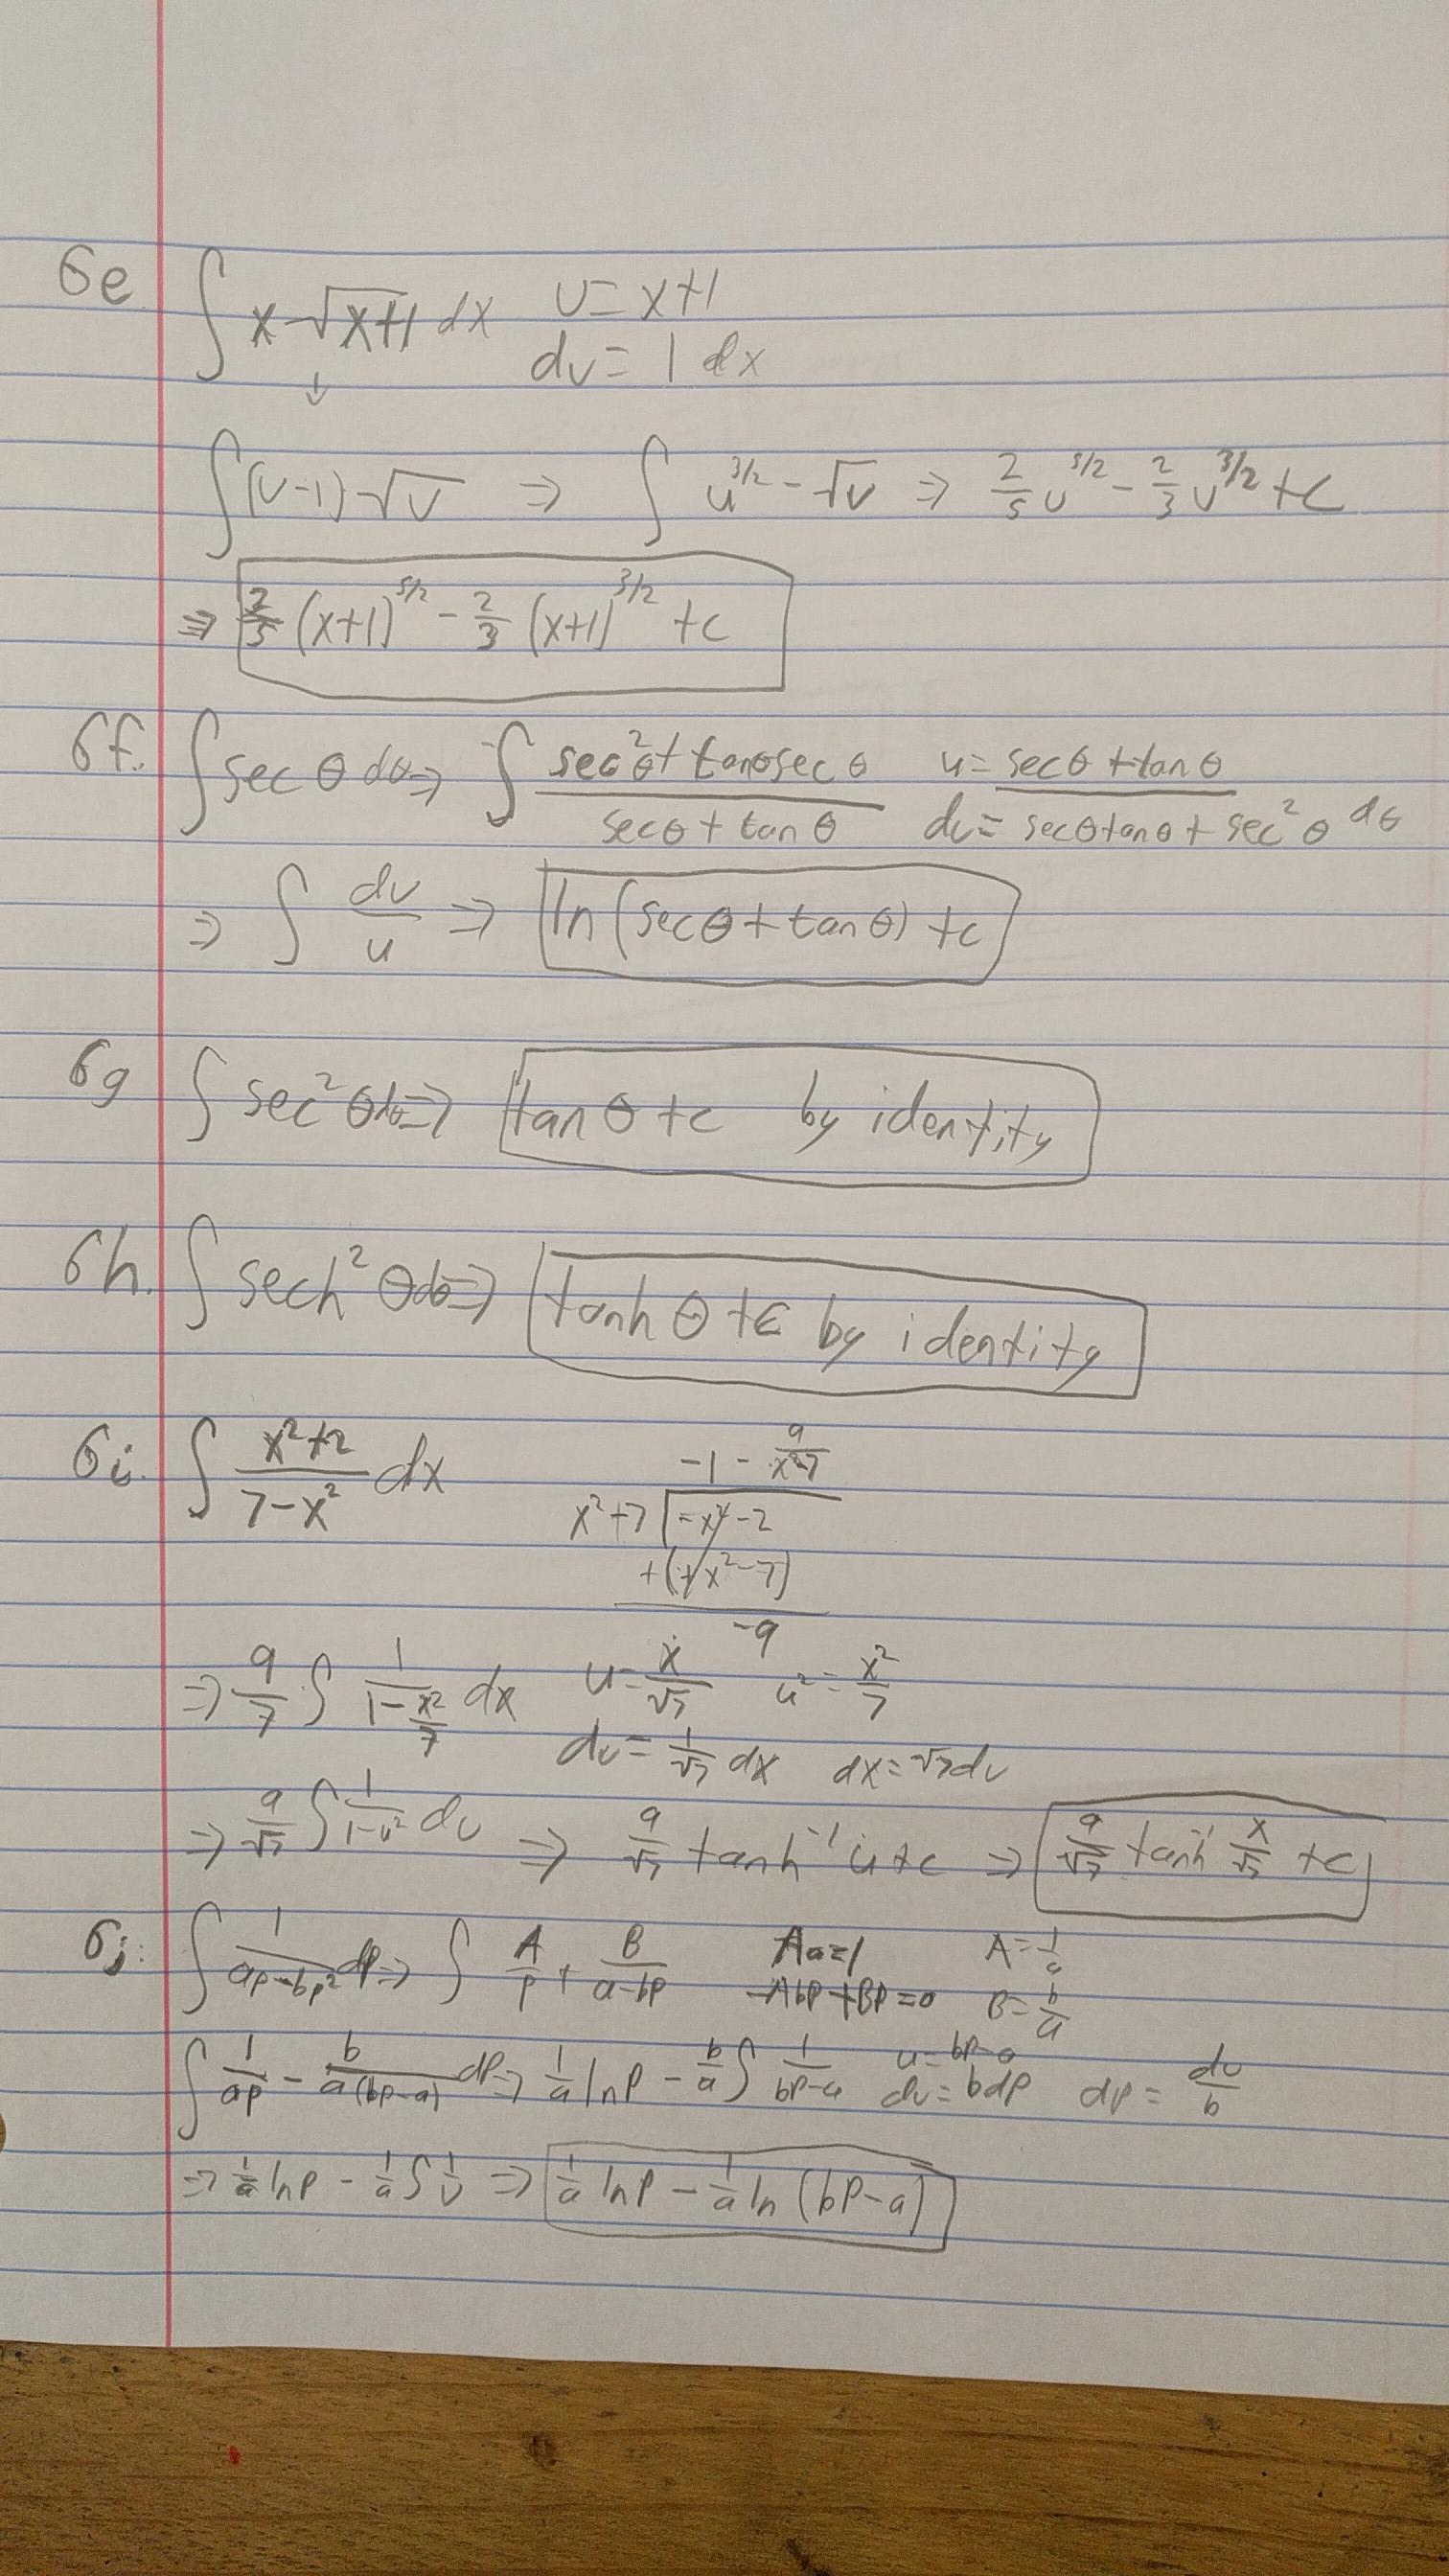 6e ∫ x√(x+1) dx   u = x+1
du = 1 dx
↓
∫(u-1)√u ⇒ ∫ u^(3/2) - √u ⇒ 2/5 u^(5/2) - 2/3 u^(3/2) + c
⇒ 2/5 (x+1)^(5/2) - 2/3 (x+1)^(3/2) + c
6f. ∫ sec θ dθ ⇒ ∫ (sec²θ + tanθ sec θ)/(secθ + tan θ)   u = secθ + tan θ
du = secθ tanθ + sec²θ dθ
⇒ ∫ du/u ⇒ ln (secθ + tan θ) + c
6g ∫ sec²θ dθ ⇒ tan θ + c by identity
6h. ∫ sech² θ dθ ⇒ tanh θ + c by identity
6i. ∫ (x²+2)/(7-x²) dx   -1 - 9/(x²-7)
x²+7 | -x² - 2
+(+x² - 7)
-9
⇒ 9/7 ∫ 1/(1 - x²/7) dx   u = x/√7   u² = x²/7
du = 1/√7 dx   dx = √7 du
⇒ 9/√7 ∫ 1/(1-u²) du ⇒ 9/√7 tanh⁻¹ u + c ⇒ 9/√7 tanh⁻¹ x/√7 + c
6j. ∫ 1/(ap-bp²) dp ⇒ ∫ A/p + B/(a-bp)   Aa=1   A = 1/a
-Abp + Bp = 0   B = b/a
∫ 1/(ap) - b/(a(bp-a)) dp ⇒ 1/a ln p - b/a ∫ 1/(bp-a)   u = bp-a
du = b dp   dp = du/b
⇒ 1/a ln p - 1/a ∫ 1/u ⇒ 1/a ln p - 1/a ln (bp-a)